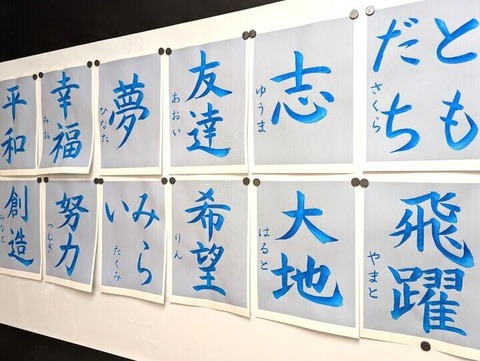 平和
幸福
みお
夢
ひなた
友達
あおい
志
ゆうま
とも
だち
さくら
創造
みなと
努力
つむぎ
みら
い
たくみ
希望
りん
大地
はると
飛躍
やまと